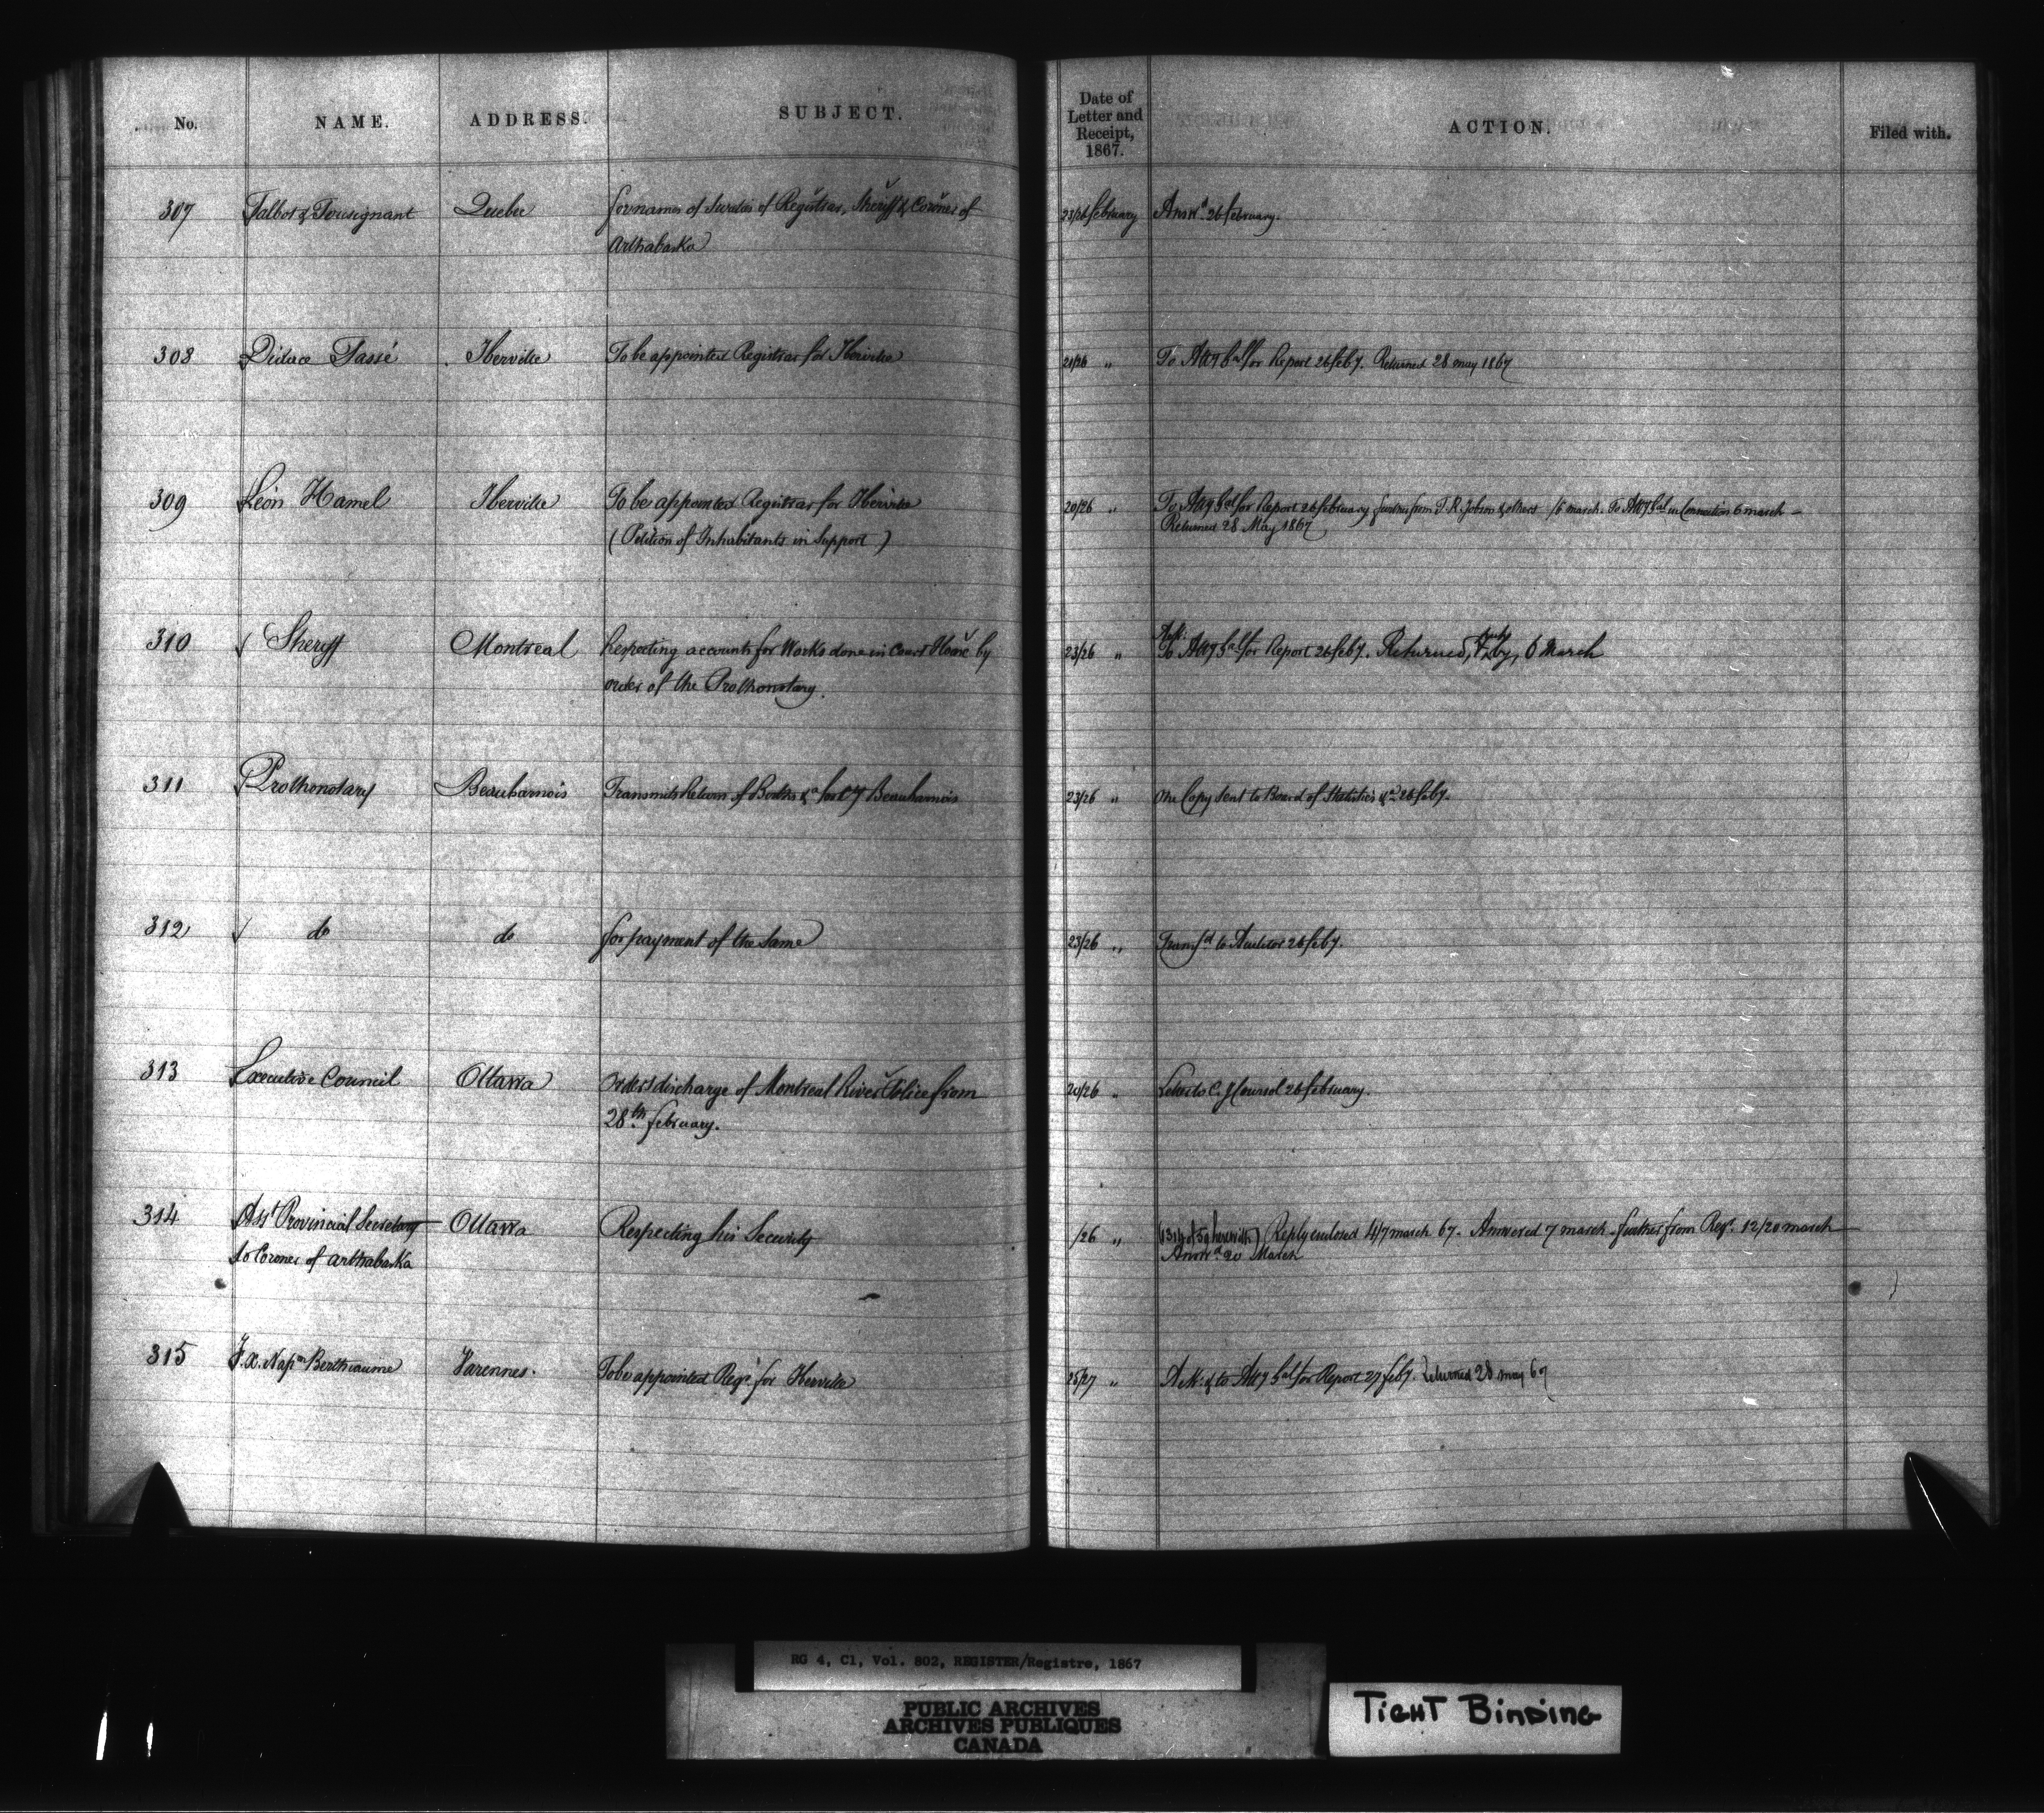 No. NAME. ADDRESS. SUBJECT. Date of Letter and Receipt, 1867. ACTION. Filed with.
307 Talbot & Tousignant Quebec For names of Sureties of Registrar, Sheriff & Coroner of 23/26 February Answd. 26 February.
Arthabaska
308 Didace Tassé Iberville To be appointed Registrar for Iberville 21/26 " To Atty Gal for Report 26 Feby. Returned 28 May 1867
309 Léon Hamel Iberville To be appointed Registrar for Iberville 20/26 " To Atty Gal for Report 26 February further from T. R. Jobson & others /6 March. To Atty Gal in Connection 6 March –
(Petition of Inhabitants in Support) Returned 28 May 1867
310 Sheriff Montreal Respecting accounts for Works done in Court House by 23/26 " Ack: To Atty Gal for Report 26 Feby. Returned, 6 March
order of the Prothonotary.
311 Prothonotary Beauharnois Transmits Return of &a for Beauharnois 23/26 " One Copy sent to Board of Statistics &a 26 Feby.
312 do do For payment of the Same 23/26 " Transfd to Auditor 26 Feby.
313 Executive Council Ottawa Orders discharge of Montreal River Police from 20/26 " Letter to C. J. Coursol 26 February.
28th February.
314 Asst Provincial Secretary Ottawa Respecting his Security /26 " (1314 of 59 herewith) Reply enclosed 4/7 March 67. Answered 7 March. further from Regr. 12/20 March
to Coroner of Arthabaska Answd 20 March
315 F. X. Napn Berthiaume Varennes. To be appointed Regr for Iberville 25/27 " Ack: & to Atty Gal for Report 27 Feby. Returned 28 May 67
RG 4, C1, Vol. 802, REGISTER/Registre, 1867
PUBLIC ARCHIVES
ARCHIVES PUBLIQUES
CANADA
TIGHT BINDING